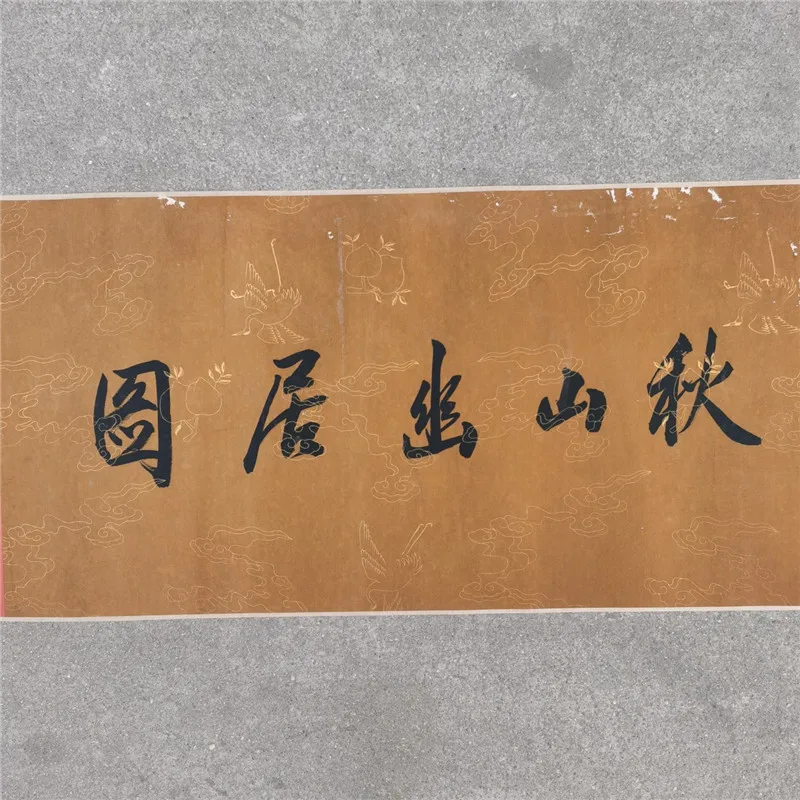 秋山幽居圖